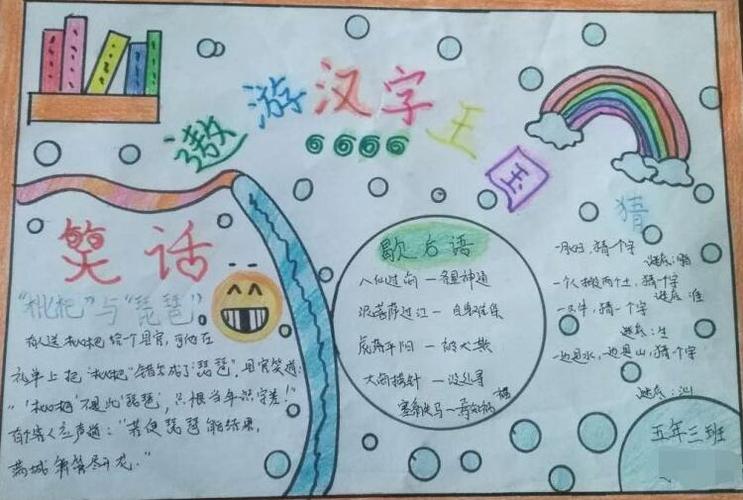 遨游汉字王国
笑话
"枇杷"与"琵琶"
有人送枇杷给一个县官,可他在
礼单上把"枇杷"错写成了"琵琶",县官笑道:
"'枇杷'不是此'琵琶',只恨当年识字差!"
有个客人应声道:"若使琵琶能结果,
满城箫管尽开花."
歇后语
八仙过海—各显神通
泥菩萨过江—自身难保
虎落平阳—被犬欺
大海捞针—没处寻
塞翁失马—焉知祸福
猜
猜一个字
谜底:
一个人搬两个土,猜一字
谜底:佳
牛,猜一个字
谜底:生
一边是水,一边是山,猜个字
谜底:汕
五年三班